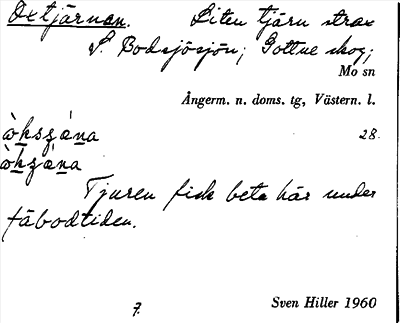 Oxtjärnan. Liten tjärn strax
S. Bodsjösjön; Gottne skog;
Mo sn
Ångerm. n. doms. tg, Västern. l.
28.
Tjuren fick beta här under
fäbodtiden.
7.
Sven Hiller 1960